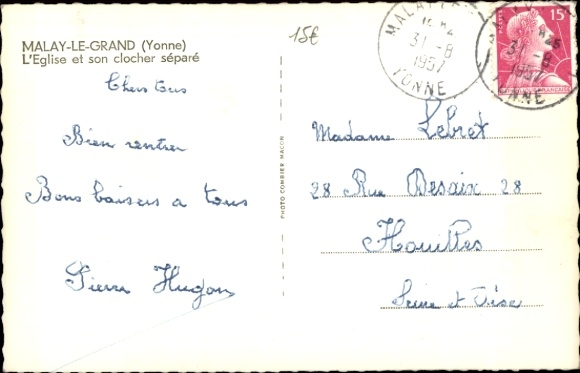 MALAY-LE-GRAND (Yonne)
L'Eglise et son clocher séparé
15€
Chers tous
Bien rentrer
Bons baisers a tous
Pierre Hugon
PHOTO COMBIER MACON
MALAY-LE-
31-8
1957
YONNE
15F
31-8
1957
YONNE
Madame Lebret
28 Rue Desaix 28
Houilles
Seine et Oise